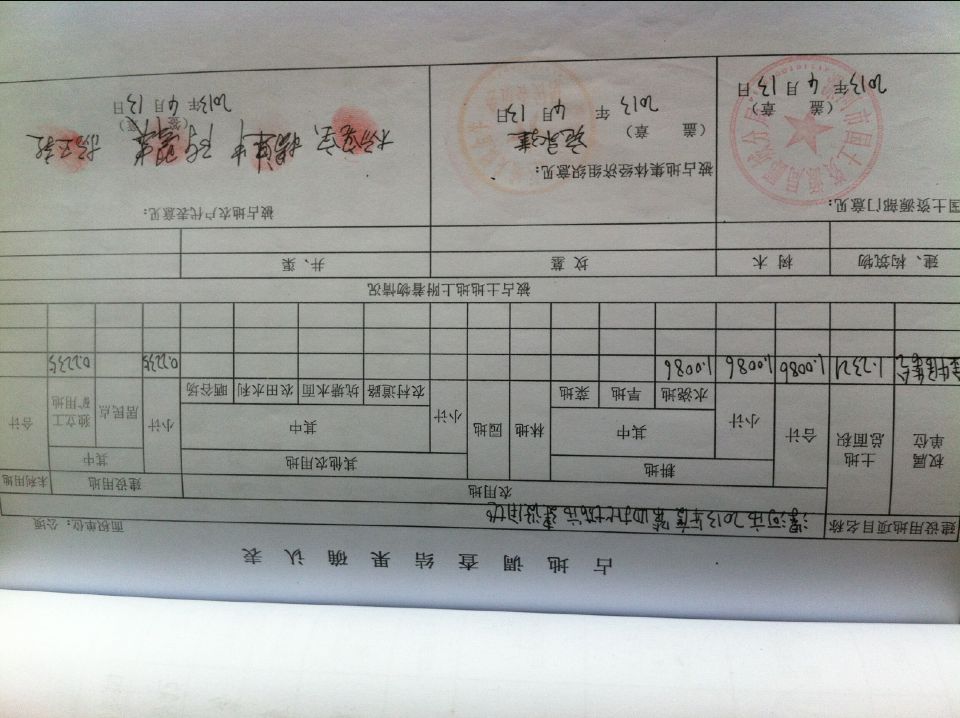 占地调查结果确认表
面积单位：公顷
建设用地项目名称 漯河市2013年度第四批城市建设用地
权属单位 土地总面积 农用地 建设用地 未利用地
合计 耕地 林地 园地 其他农用地 小计 其中 合计
小计 其中 小计 其中 居民点 独立工矿用地
水浇地 旱地 菜地 农村道路 坑塘水面 农田水利 晒谷场
1.2321 1.0086 1.0086 1.0086 0.2235 0.2235
被占土地地上附着物情况
建、构筑物 树木 坟墓 井、渠
国土资源部门意见：
（盖章）
2013年4月13日
被占地集体经济组织意见：
（盖章）
2013年4月13日
被占地农户代表意见：
（签章）
2013年4月13日